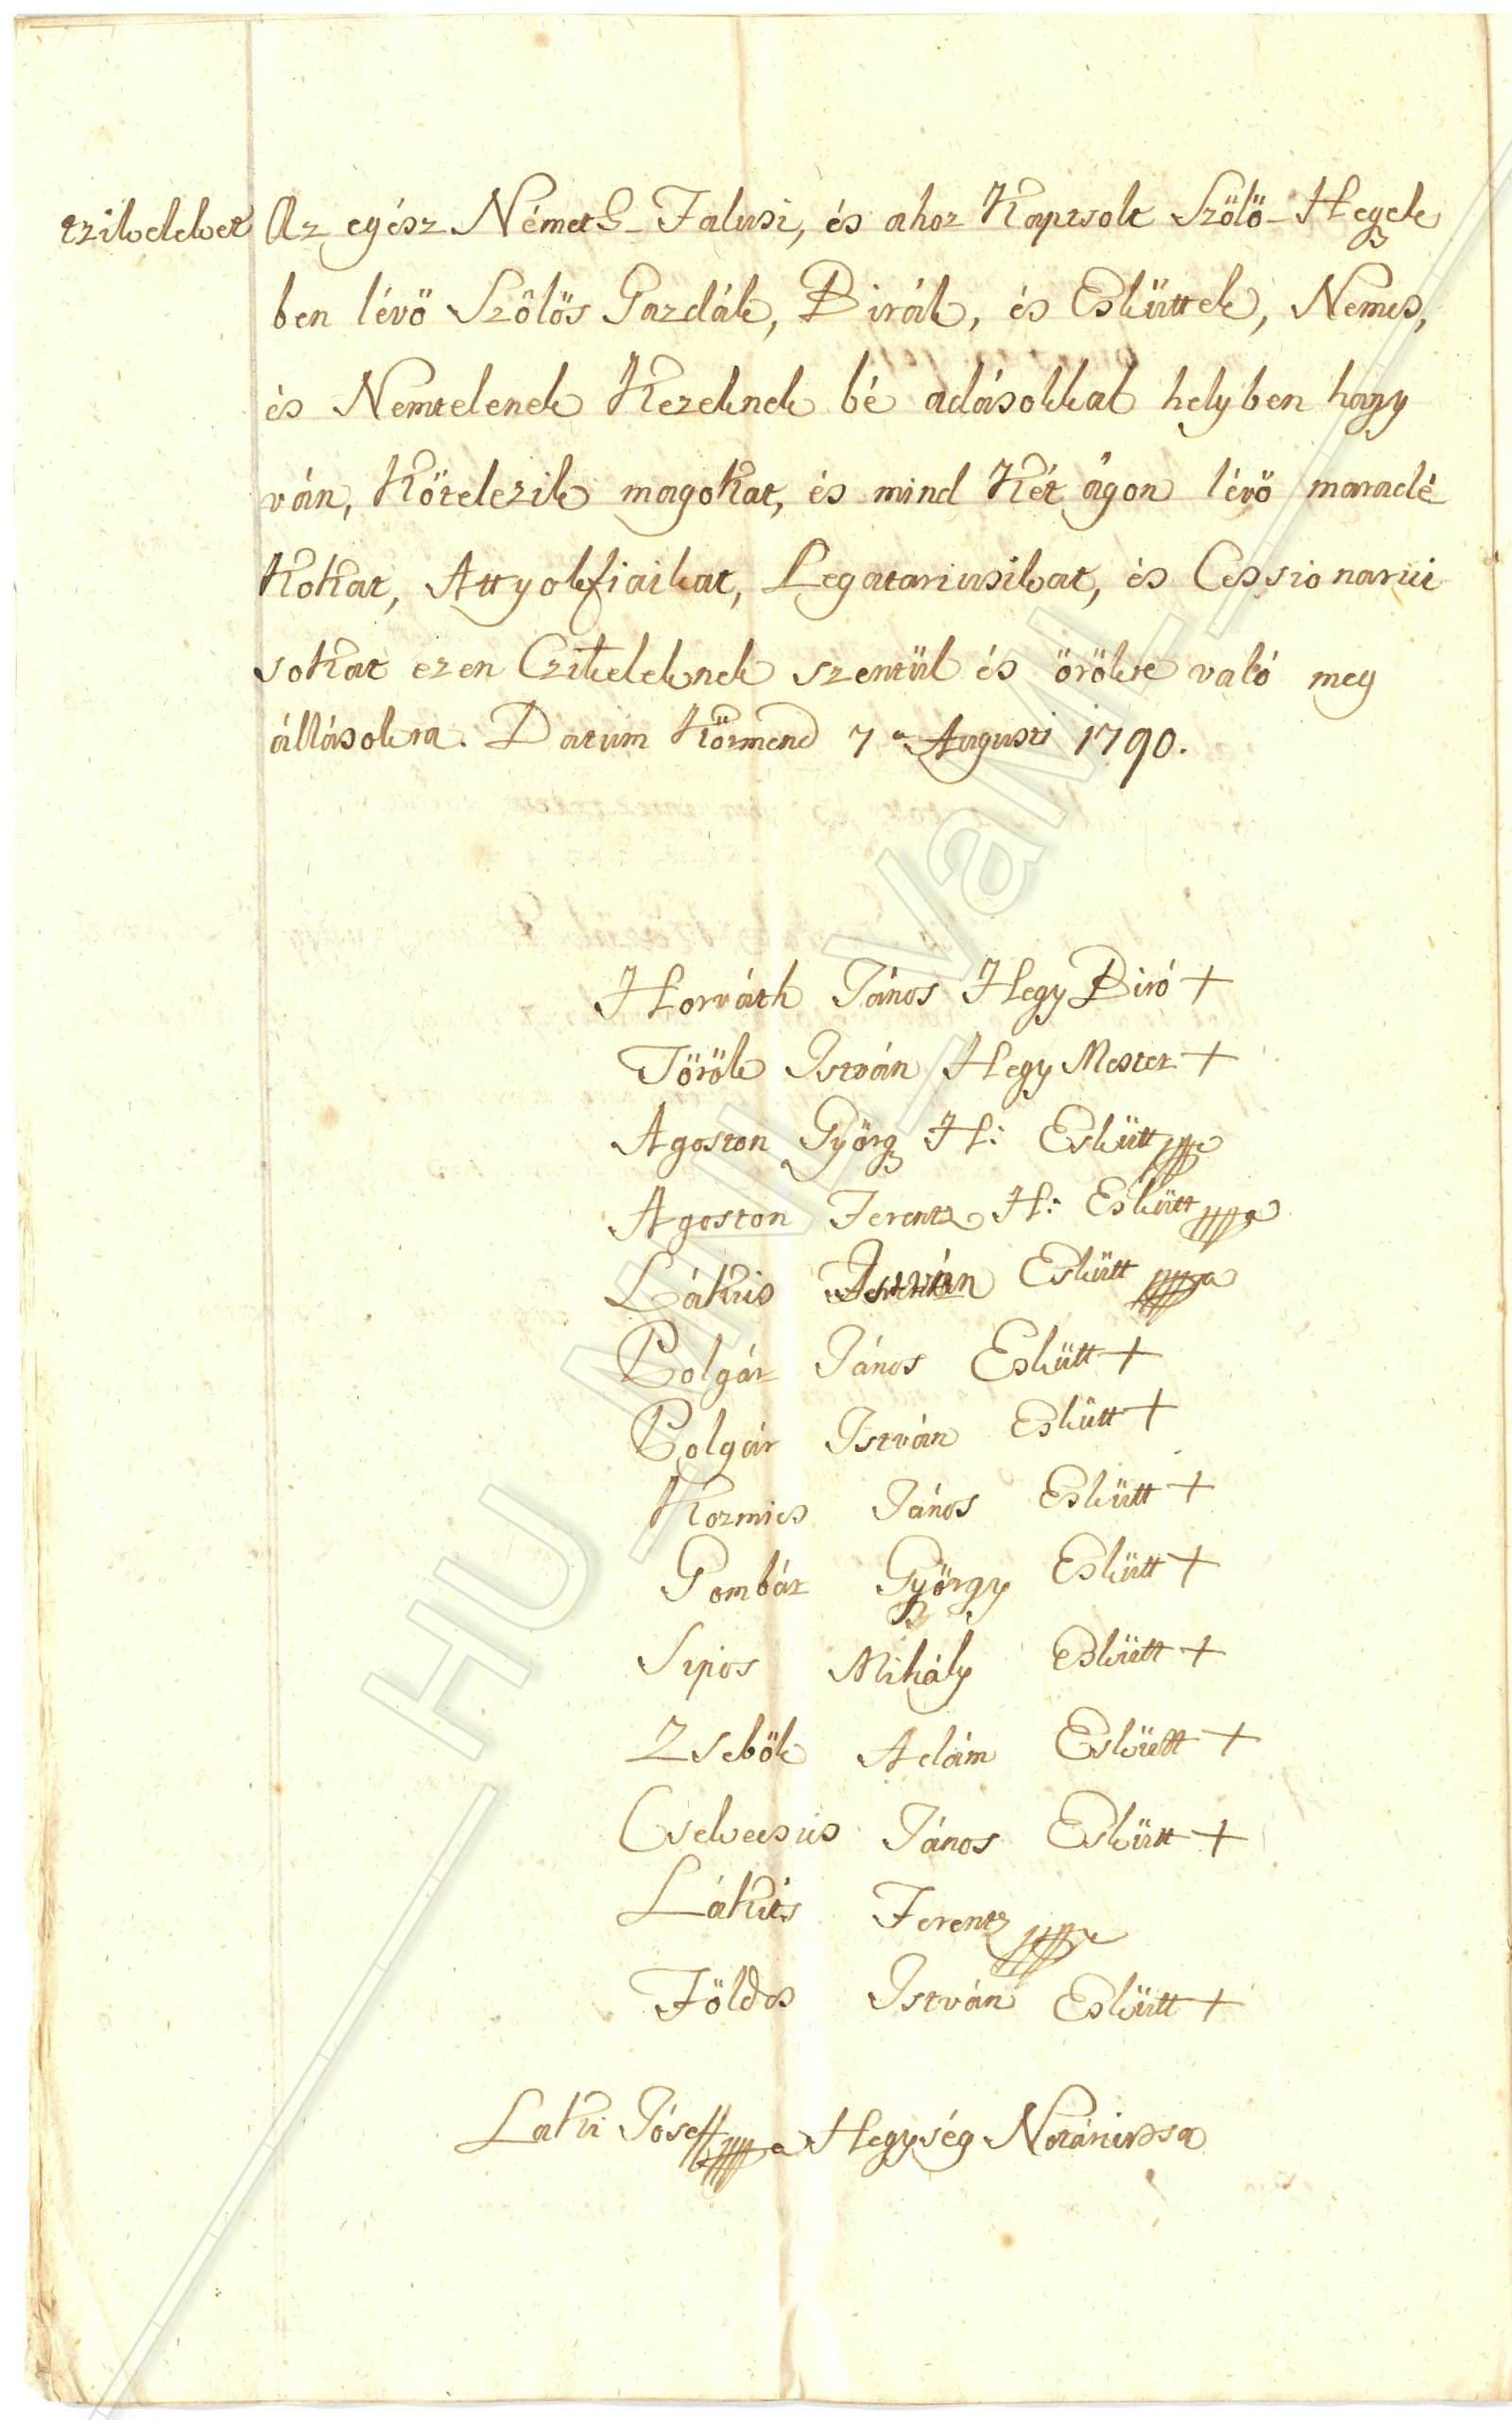 czikelyket Az egész Németh-Falusi, és ahoz Kaptsolt Szőlő-Hegyek
ben lévö Szőlös Gazdák, Birák, és Esküttek, Nemes,
és Nemtelenek Kezeknek bé adásokkal helyben hagy
ván, Kötelezik magokat, és mind Két ágon lévö maradé
Kokat, Attyokfiaikat, Legatariusikat, és Cessionariu
sokat ezen Czikeleknek szentül és örökre való meg
állásokra. Datum Körmend 7a Augusti 1790.
Horváth János Hegy Biró +
Török István Hegy Mester +
Agoston Györg H: Eskütt mpa
Agoston Ferentz H: Eskütt mpa
Lákits István Eskütt mpa
Polgár János Eskütt +
Polgár István Eskütt +
Kozmics János Eskütt +
Gombár György Eskütt +
Sipos Mihály Eskütt +
Zsebök Adám Eskütt +
János Eskütt +
Lákits Ferentz mpa
Földes István Eskütt +
Laki Jósef mpa Hegység Notáriussa
HU-MNL-VaML-